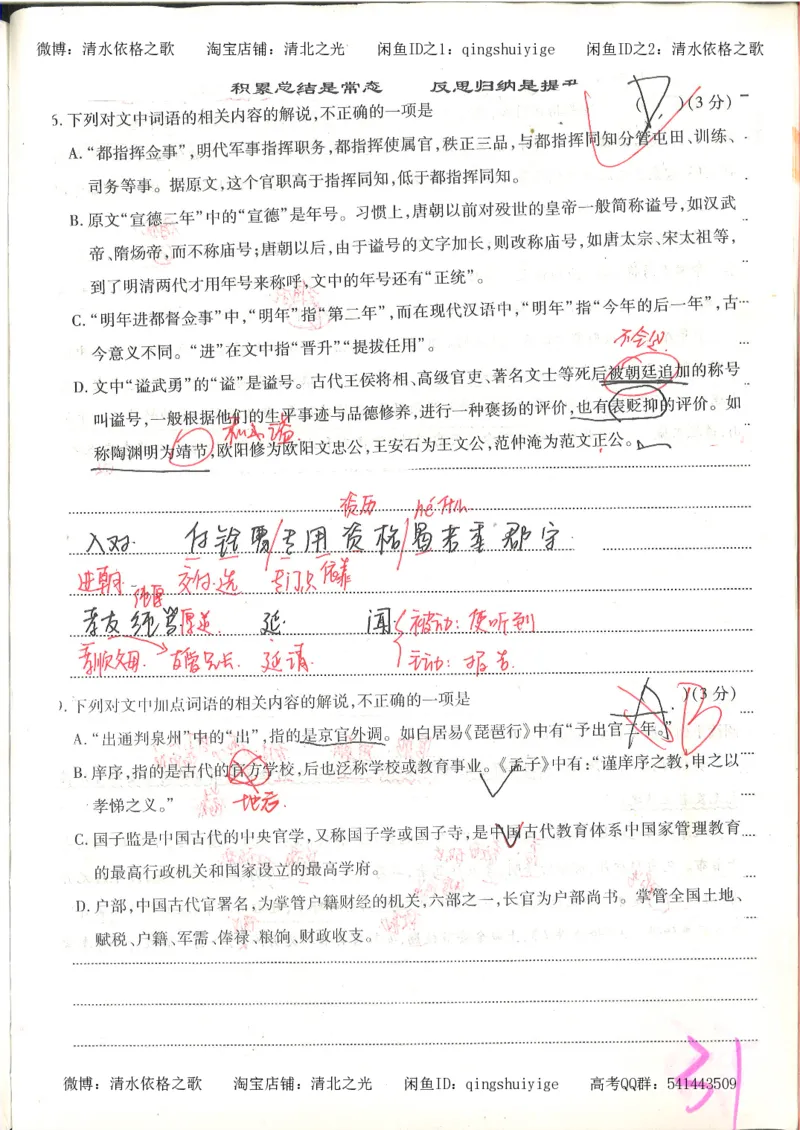 微博：清水依格之歌 淘宝店铺：清北之光 闲鱼ID之1：qingshuiyige 闲鱼ID之2：清水依格之歌
积累总结是常态 反思归纳是提升
5.下列对文中词语的相关内容的解说,不正确的一项是 ( D. )(3 分)
A.“都指挥佥事”,明代军事指挥职务,都指挥使属官,秩正三品,与都指挥同知分管屯田、训练、
司务等事。据原文,这个官职高于指挥同知,低于都指挥同知。
B.原文“宣德二年”中的“宣德”是年号。习惯上,唐朝以前对殁世的皇帝一般简称谥号,如汉武
帝、隋炀帝,而不称庙号;唐朝以后,由于谥号的文字加长,则改称庙号,如唐太宗、宋太祖等,
到了明清两代才用年号来称呼,文中的年号还有“正统”。
C.“明年进都督佥事”中,“明年”指“第二年”,而在现代汉语中,“明年”指“今年的后一年”,古
今意义不同。“进”在文中指“晋升”“提拔任用”。
不全是
D.文中“谥武勇”的“谥”是谥号。古代王侯将相、高级官吏、著名文士等死后被朝廷追加的称号
叫谥号,一般根据他们的生平事迹与品德修养,进行一种褒扬的评价,也有表贬抑的评价。如
私谥
称陶渊明为靖节,欧阳修为欧阳文忠公,王安石为王文公,范仲淹为范文正公。
资历 hé 什么
入对 付铨曹/专用资格/曷若重郡守
进朝 交付 选 专门只 依靠
孝友 厚道 延 闻 被动：使听到
孝顺父母 延请 主动：报告
9.下列对文中加点词语的相关内容的解说,不正确的一项是 A. B )(3 分)
A.“出通判泉州”中的“出”,指的是京官外调。如白居易《琵琶行》中有“予出官二年。”
B.庠序,指的是古代的官方学校,后也泛称学校或教育事业。《孟子》中有:“谨庠序之教,申之以
孝悌之义。” 地方
C.国子监是中国古代的中央官学,又称国子学或国子寺,是中国古代教育体系中国家管理教育
的最高行政机关和国家设立的最高学府。
D.户部,中国古代官署名,为掌管户籍财经的机关,六部之一,长官为户部尚书。掌管全国土地、
赋税、户籍、军需、俸禄、粮饷、财政收支。
31
微博：清水依格之歌 淘宝店铺：清北之光 闲鱼ID：qingshuiyige 高考QQ群：541443509